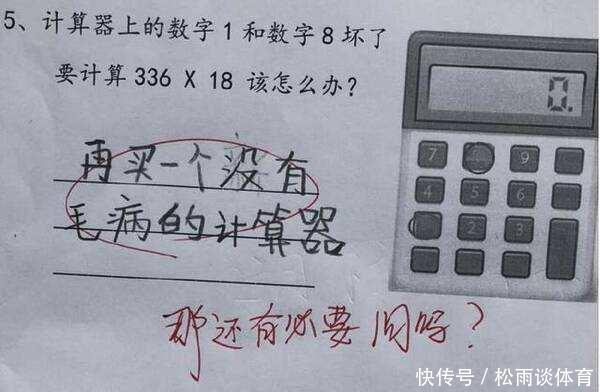 5、计算器上的数字1和数字8坏了
要计算336 X 18 该怎么办?
再买一个没有
毛病的计算器
那还有必要问吗?
0.
7 9
4 5 6
2 3
快传号/松雨谈体育